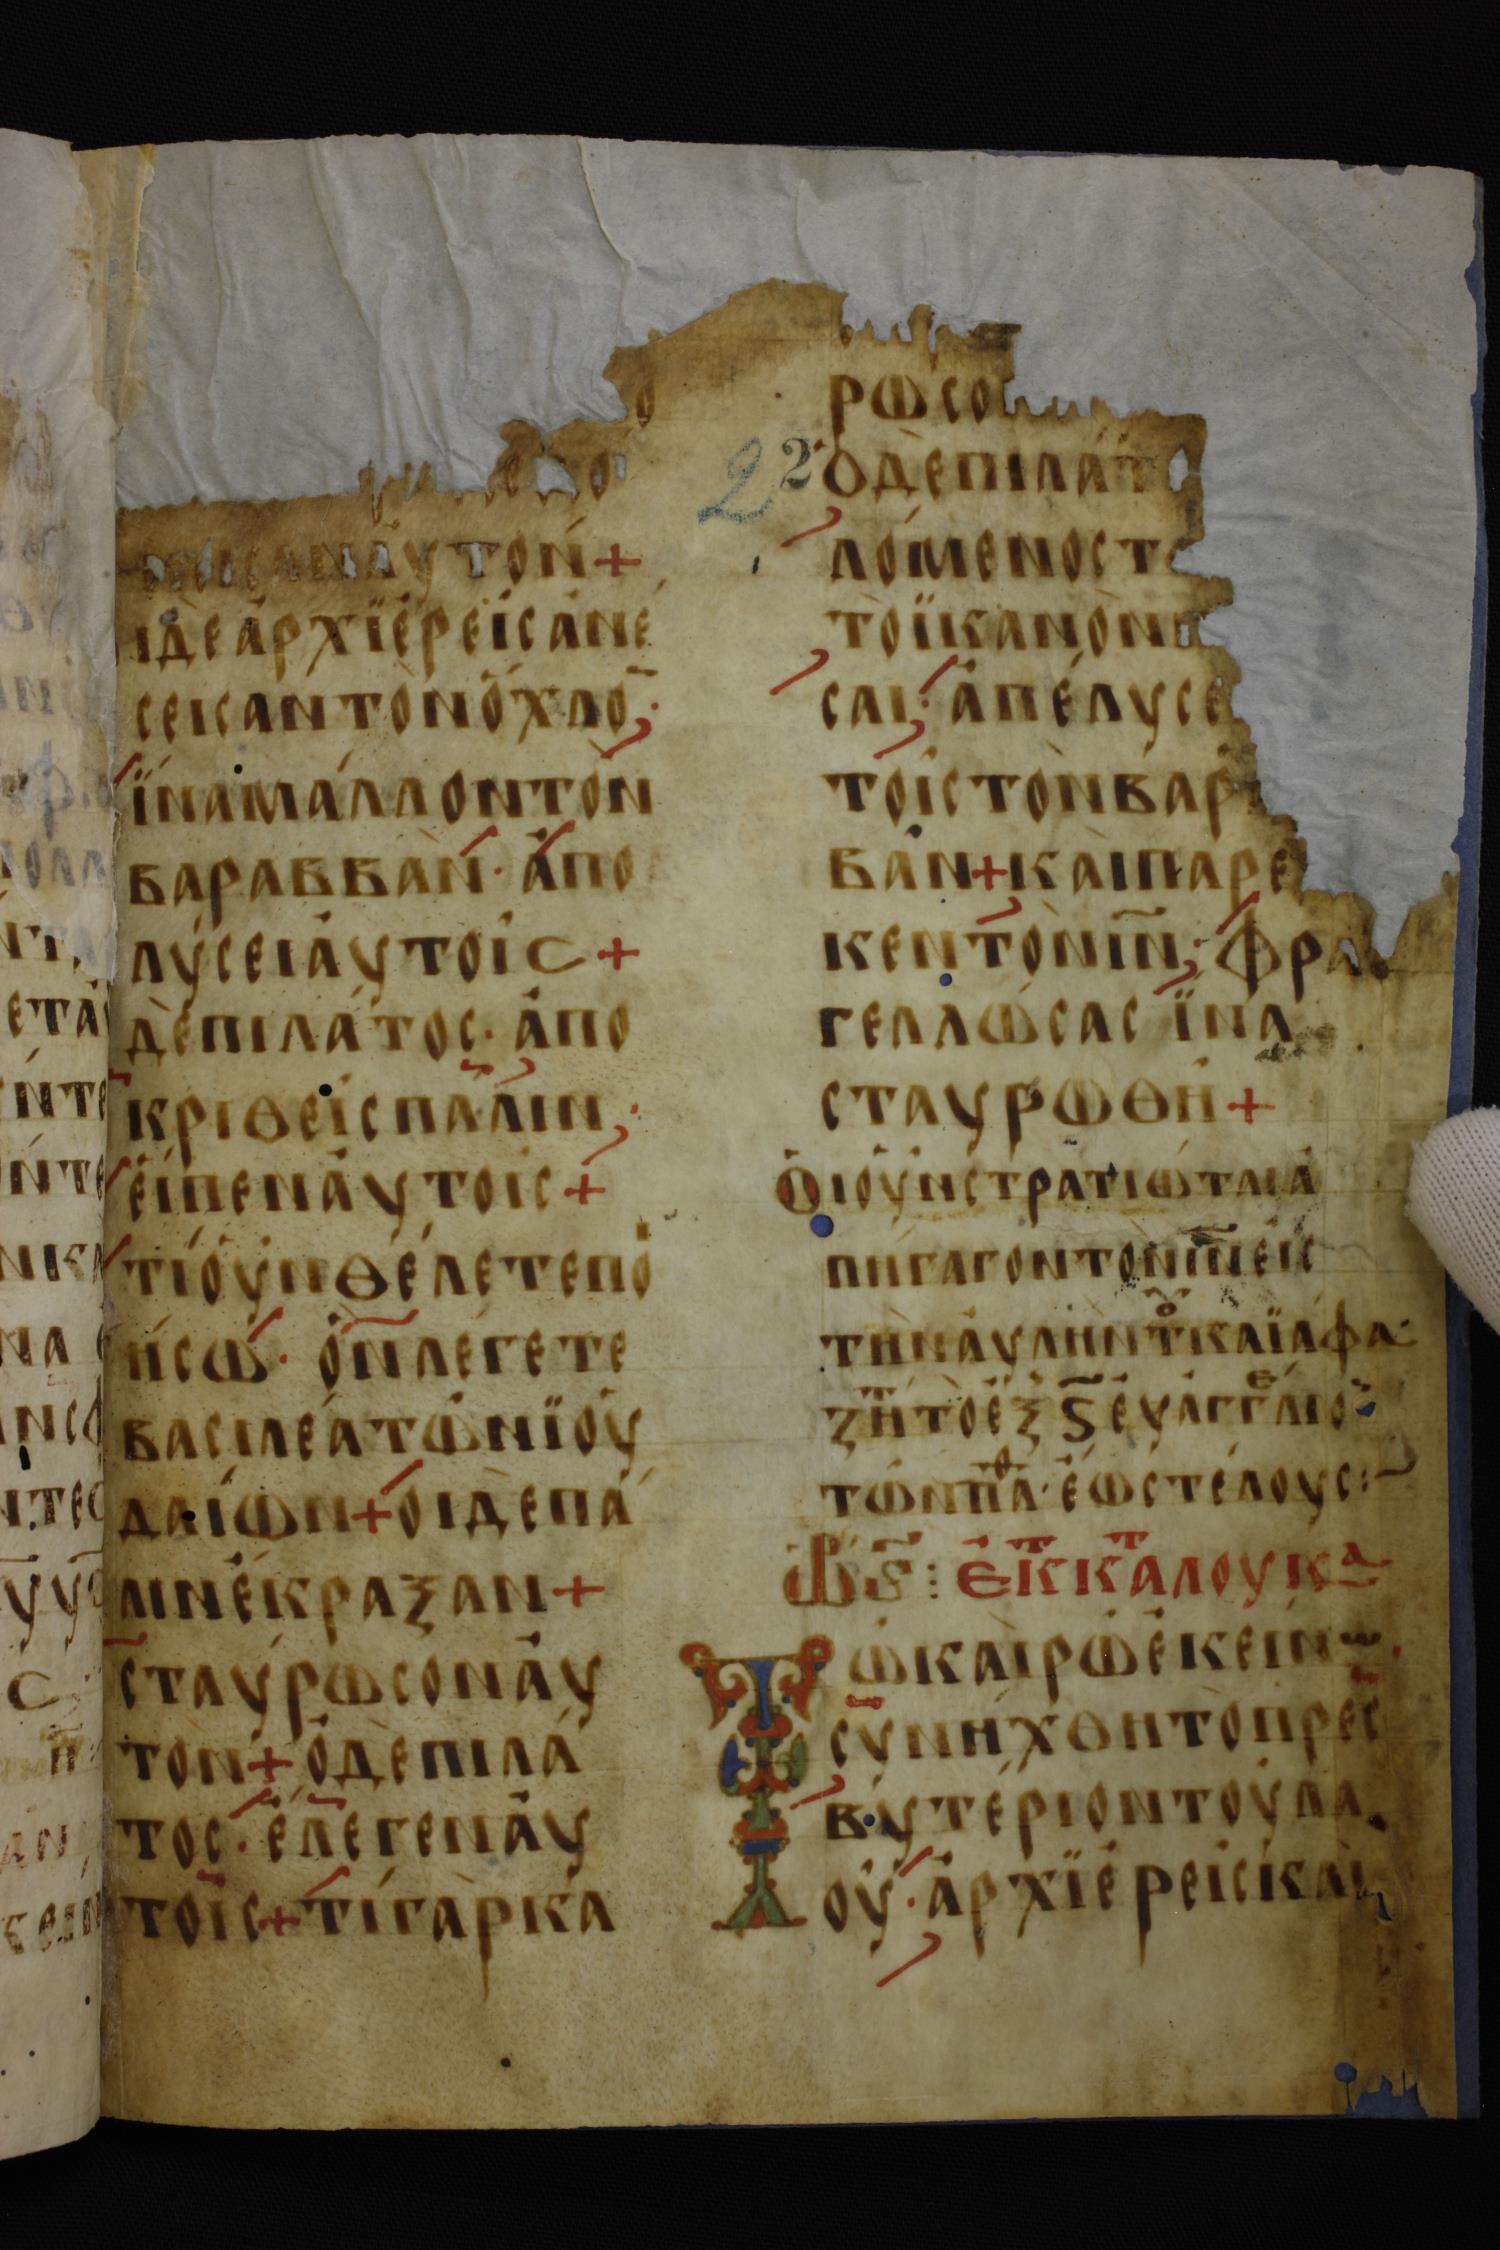 αυτον+
ϊδεαρχϊερεισανε
σεισαντονοχλο̅·
ϊναμαλλοντον
βαραββαν·απο
λυσειαυτοις+
δεπιλατος·απο
κριθεισπαλιν·
ειπεναυτοις+
τιουνθελετεπο
ησω·ονλεγετε
βασιλεατωνϊου
δαιων+οιδεπα
λινεκραξαν+
σταυρωσοναυ
τον+οδεπιλα
τος·ελεγεναυ
τοις+τιγαρκα
22
ρωσο
οδεπιλατ
λομενοστ
τοϊκανονπ
σαι·απελυσε
τοιστονβαρ
βαν+καιπαρε
κεντονι̅ν̅·φρα
γελλωσασϊνα
σταυρωθη+
οιουνστρατιωταια
πηγαγοντονι̅ν̅εις
τηναυληντ͂καϊαφα·
ζητ̅τοεξϛ̅ευαγγελιο
τωνπαθ·εωστελους:
εκτ κατ λουκα
Τωκαιρωεκεινω
συνηχθητοπρεσ
βυτεριοντουλα
ου·αρχϊερεισκαι